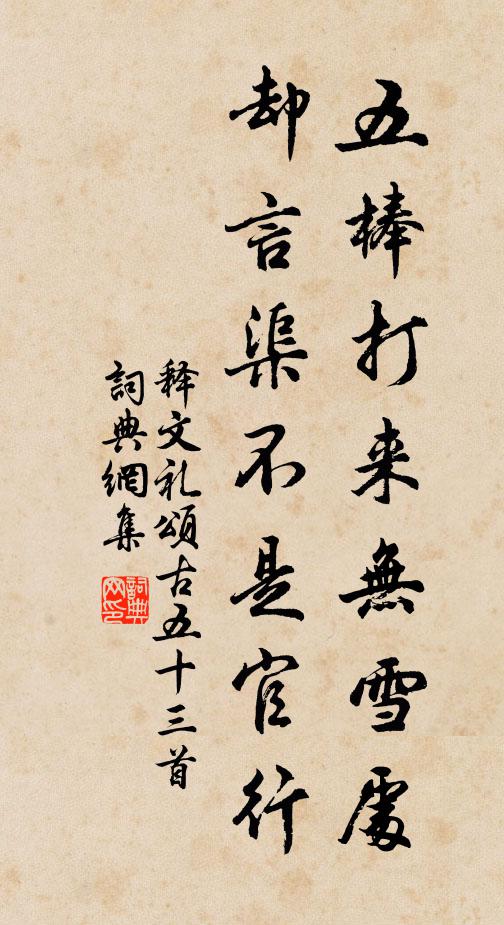 五棒打来無雪處
却言渠不是官行
释文礼頌古五十三首
詞典網集
詞典網印